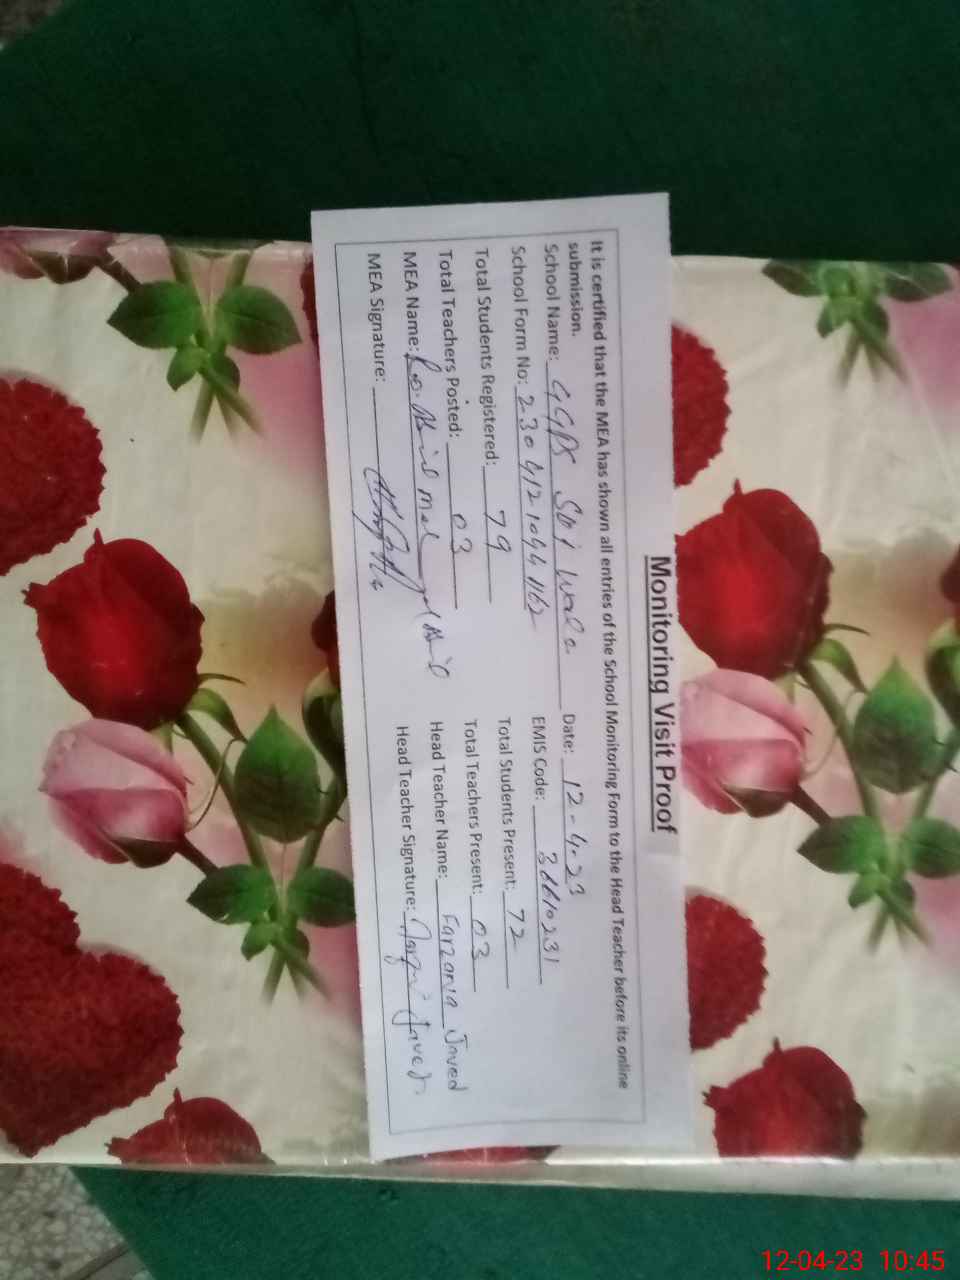 Monitoring Visit Proof
It is certified that the MEA has shown all entries of the School Monitoring Form to the Head Teacher before its online
submission.
School Name: GGPS Date: 12-4-23
School Form No: 23041210441162 EMIS Code:
Total Students Registered: 79 Total Students Present: 72
Total Teachers Posted: 03 Total Teachers Present: 03
MEA Name: Head Teacher Name: Farzana Javed
MEA Signature: Head Teacher Signature:
12-04-23 10:45